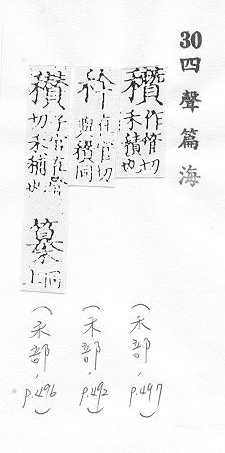 30四聲篇海
穳 作管切
禾積也
(禾部,p.497)
在管切
與穳同
(禾部,p.492)
穳 子管在管
切禾積也
同上
(禾部,p.496)